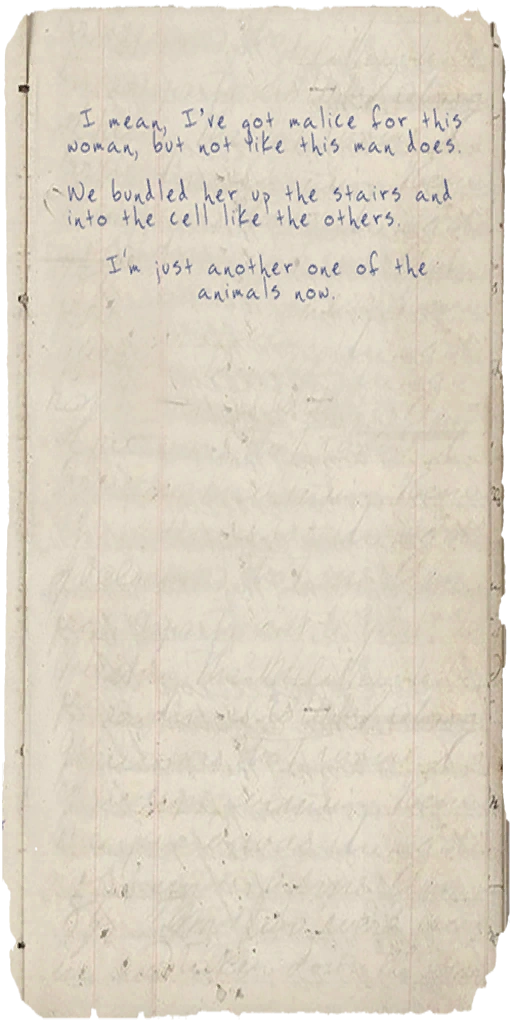 I mean, I've got malice for this
woman, but not like this man does.
We bundled her up the stairs and
into the cell like the others.
I'm just another one of the
animals now.